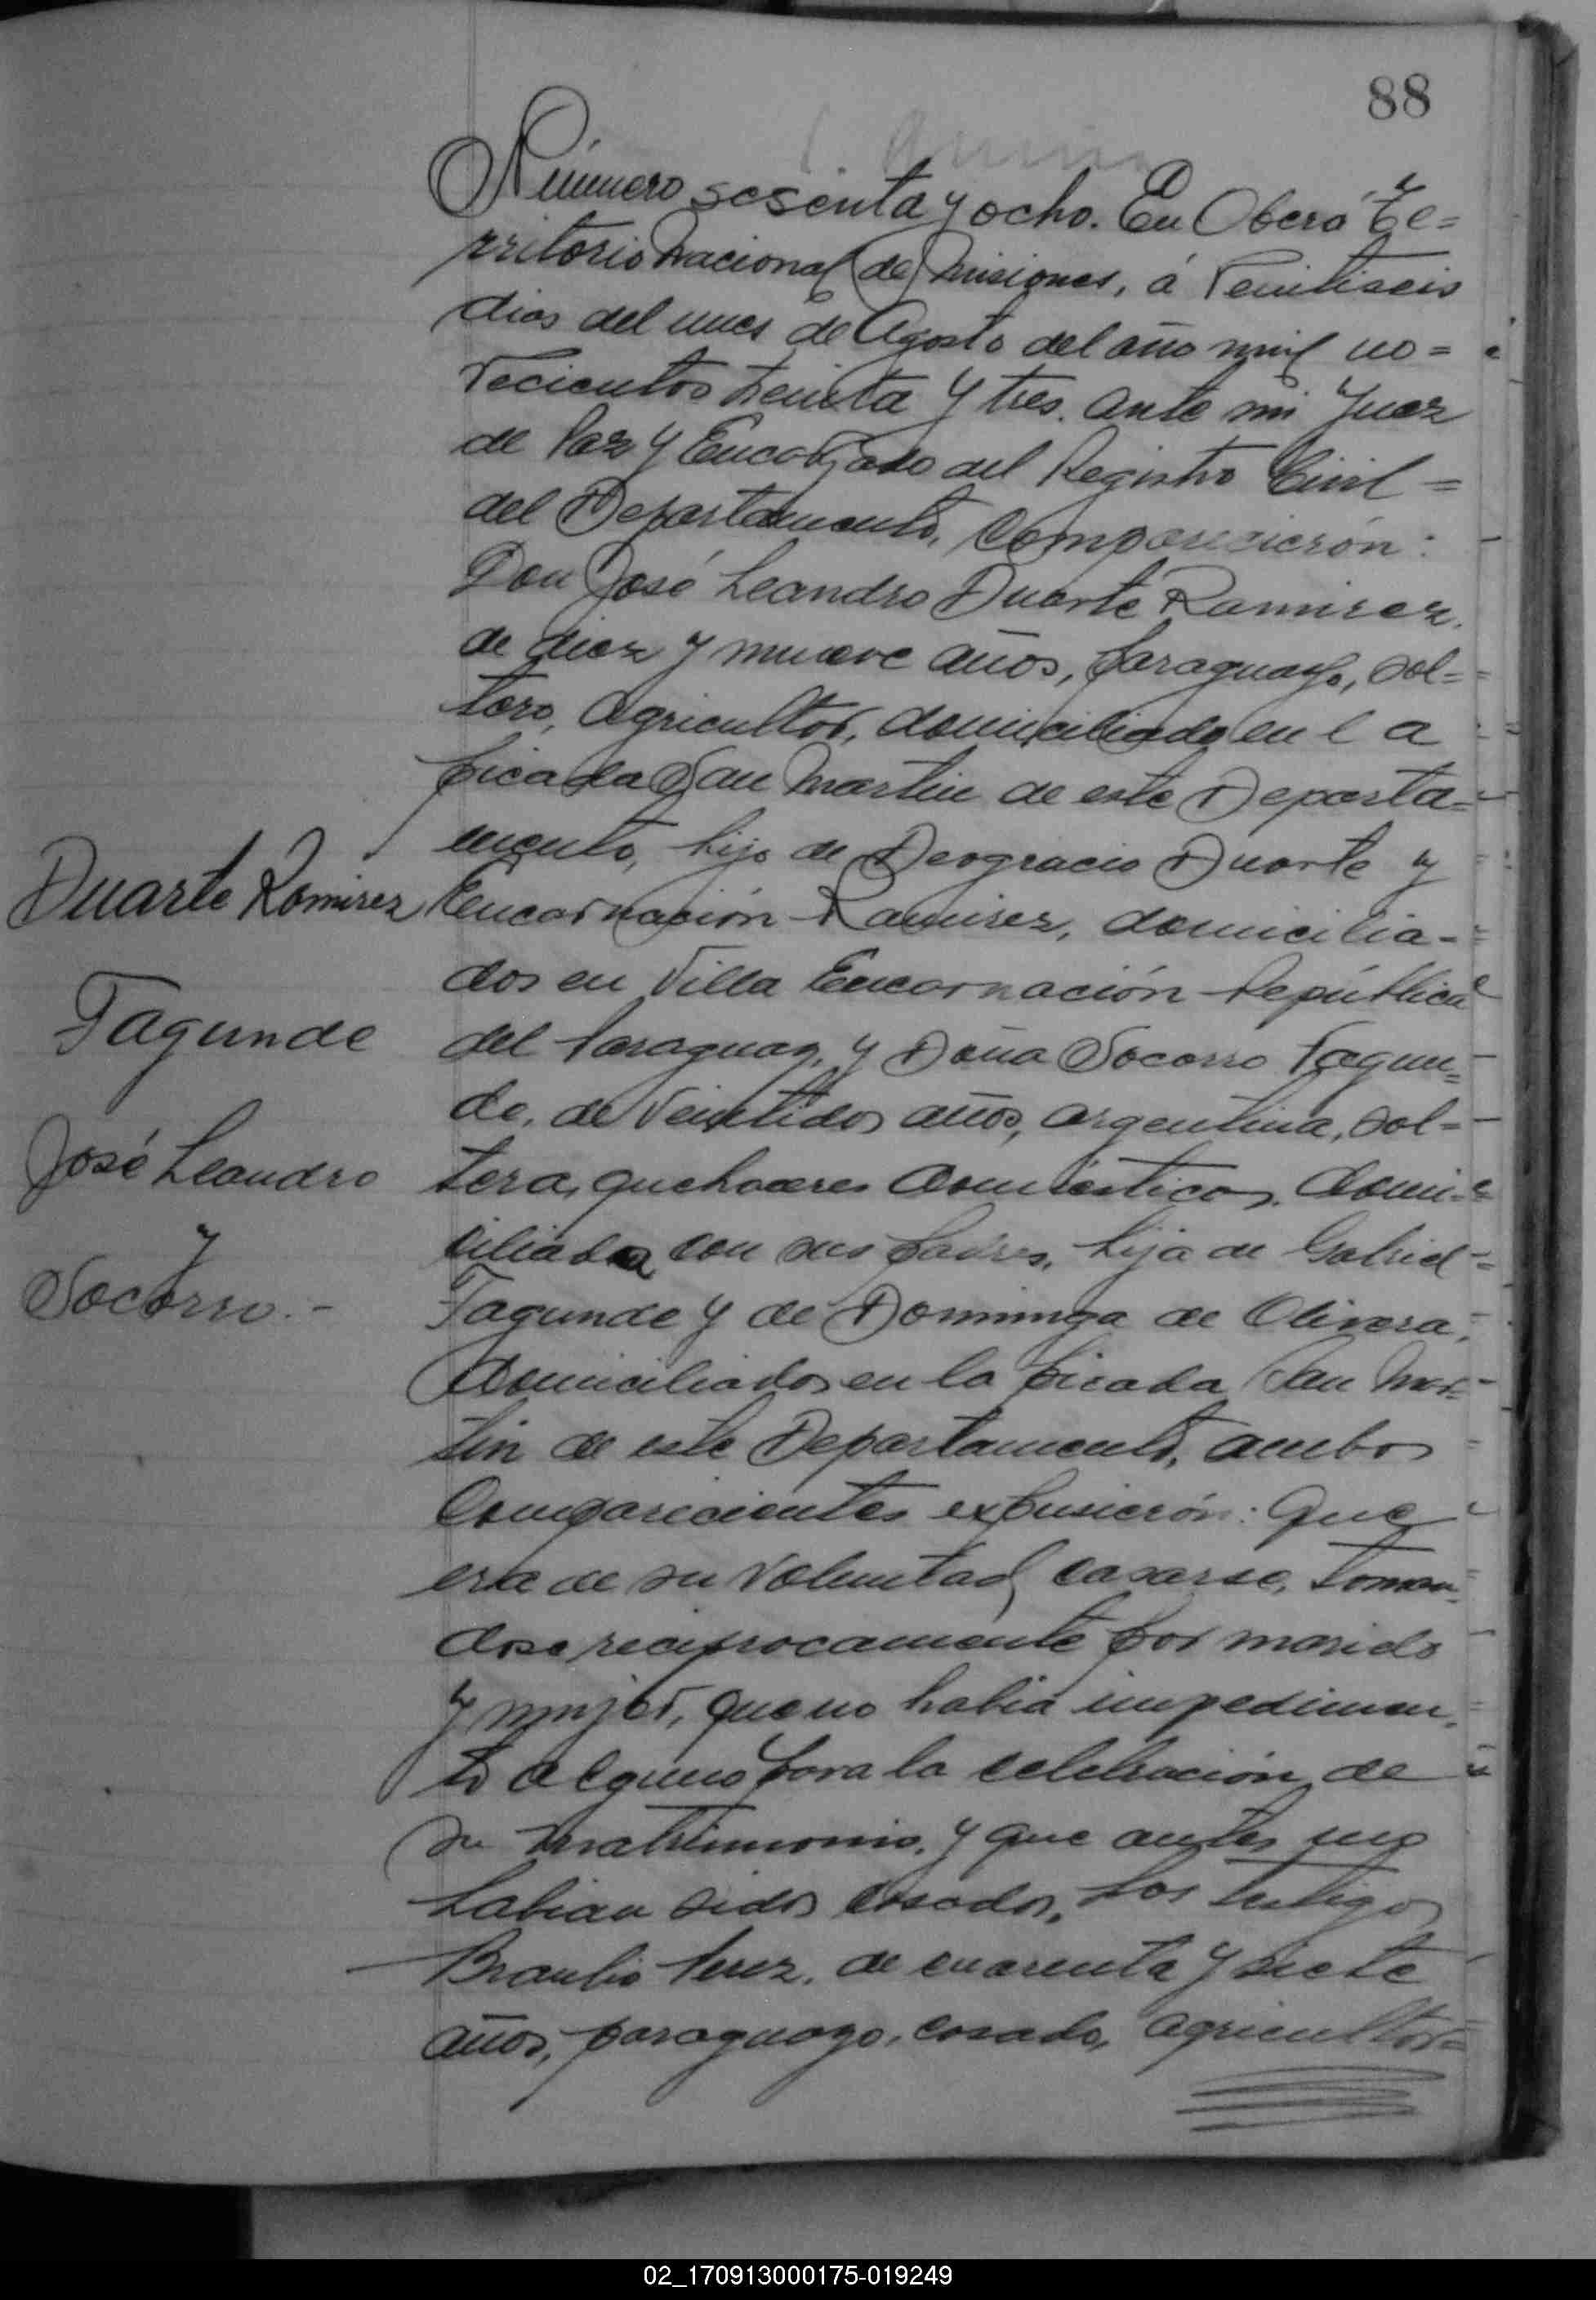 88
Número sesenta y ocho. En Oberá Te=
rritorio Nacional de Misiones, á Veintiseis
dias del mes de Agosto del año mil no=
vecientos treinta y tres. Ante mi Juez
de Paz y Encargado del Registro Civil =
del Departamento, Comparecierón:
Don José Leandro Duarte Ramirez.
de diez y nueve años, paraguayo, sol=
tero, agricultor, domiciliado en la
picada San Martin de este Departa=
mento, hijo de Deogracio Duarte y
Encarnación Ramirez, domicilia-
dos en Villa Encarnación República
del Paraguay, y Doña Socorro Fagun=
de, de Veintidos años, argentina, sol=
tera, quehaceres domésticos. domi=
ciliada con sus padres, hija de Gabriel =
Fagunde y de Dominga de Olivera,
domiciliados en la picada San Mar=
tin de este Departamento, ambos
Comparecientes expusierón: Que
era de su voluntad casarse, toman=
dose reciprocamente por marido
y mujer, que no habia impedimen=
to alguno para la celebración de
su matrimonio, y que antes no
habian sidos casados, Los testigos
Braulio Perez, de cuarenta y siete
años, paraguayo, casado, agricultor=
Duarte Ramirez
Fagunde
José Leandro
y
Socorro.-
02_170913000175-019249